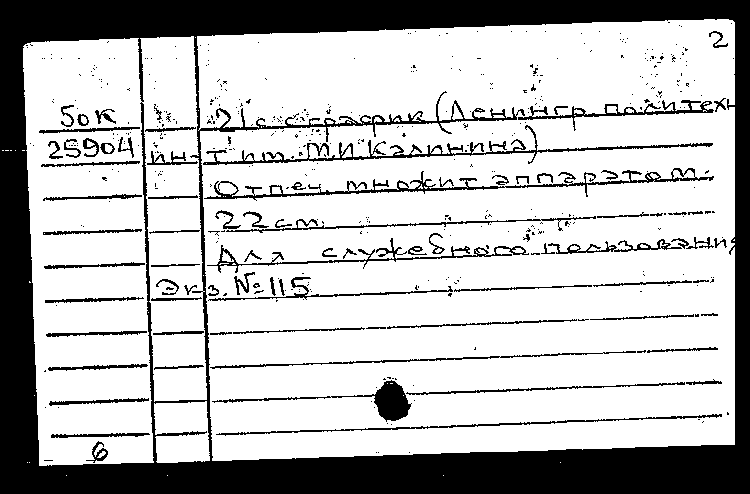 2
50к 21с с график (Ленингр. политехн
25904 ин-т им. М.И. Калинина)
Отпеч. множит аппаратом.
22 см.
Для служебного пользования
Экз. № 115
6